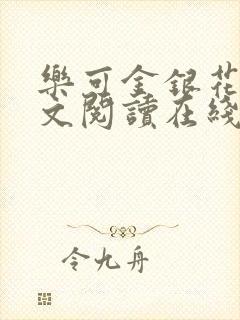 樂可金銀花
文閱讀在綫
令九舟